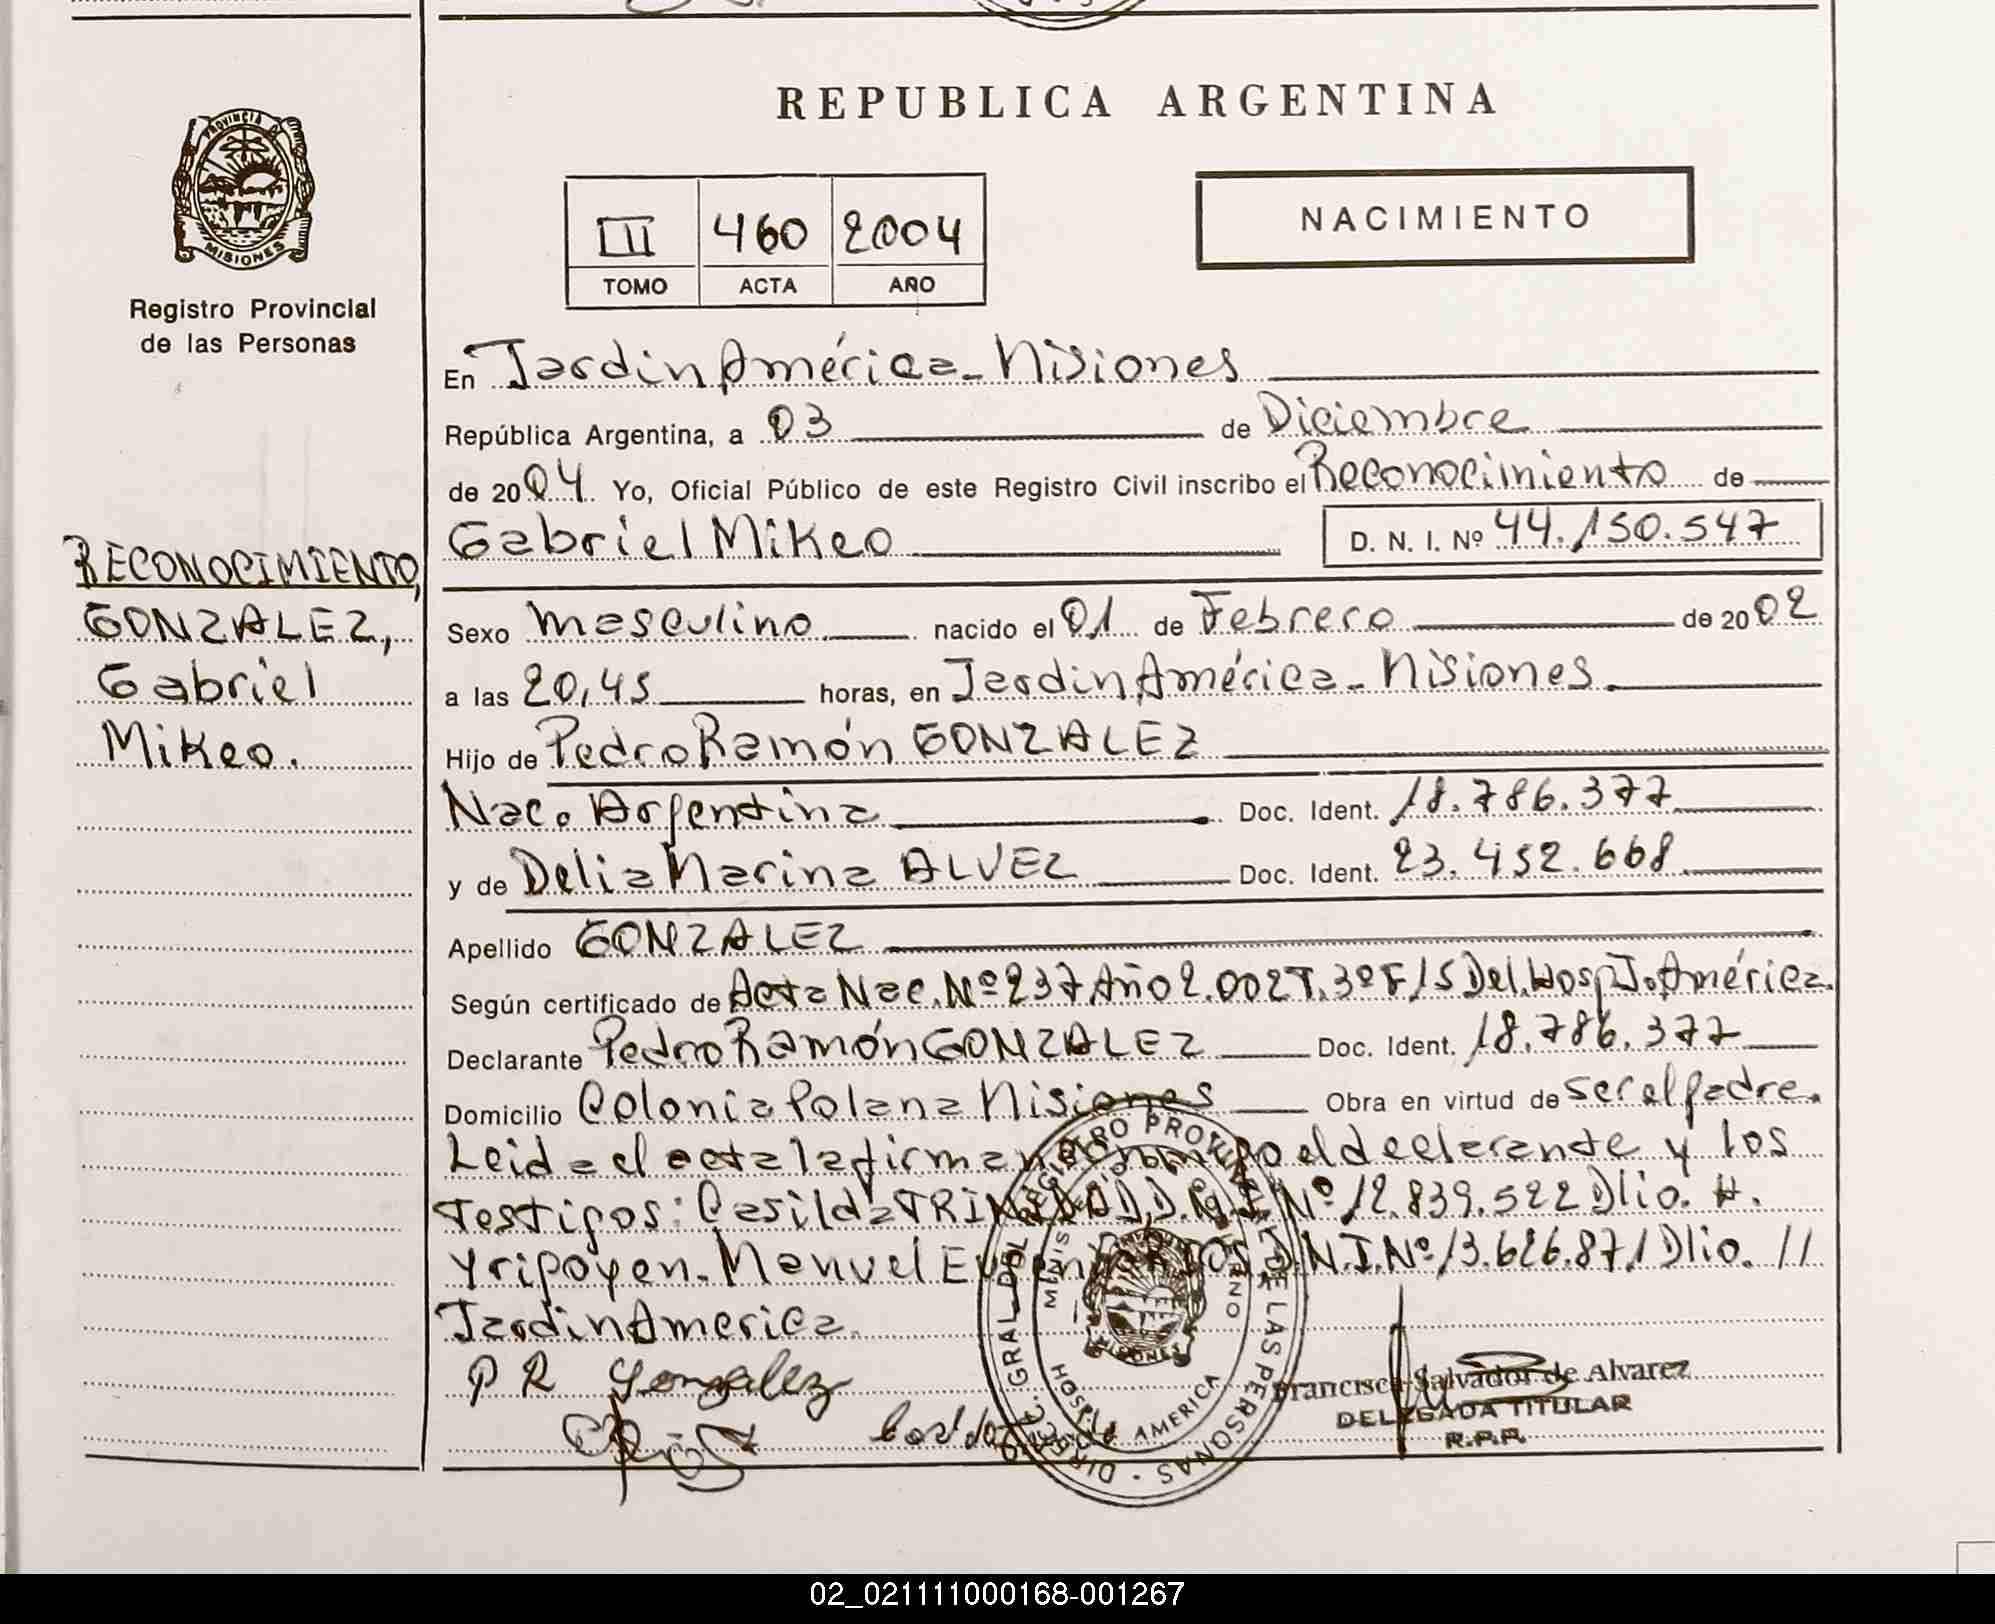 REPUBLICA ARGENTINA
PROVINCIA D
MISIONES
Registro Provincial
de las Personas
III 460 2004
TOMO ACTA AÑO
NACIMIENTO
En Jardin América - Misiones
República Argentina, a 03 de Diciembre
de 2004. Yo, Oficial Público de este Registro Civil inscribo el Reconocimiento de
Gabriel Mikeo D. N. I. Nº 44.150.547
RECONOCIMIENTO,
GONZALEZ,
Gabriel
Mikeo.
Sexo masculino nacido el 01 de Febrero de 2002
a las 20,45 horas, en Jardin América - Misiones
Hijo de Pedro Ramón GONZALEZ
Nac. Argentina Doc. Ident. 18.786.377
y de Delia Marina ALVEZ Doc. Ident. 23.452.668
Apellido GONZALEZ
Según certificado de Acta Nac. Nº 237 Año 2.002 T. 3º F/S Del. Hosp. J. América.
Declarante Pedro Ramón GONZALEZ Doc. Ident. 18.786.377
Domicilio Colonia Polana Misiones Obra en virtud de ser el padre.
Leida el acta la firman conmigo el declarante y los
Testigos: Casilda TRINIDAD, D.N.I. Nº 12.839.522 Dlio. H.
Yripoyen. Manuel Eugenio RIOS, D.N.I. Nº 13.626.871 Dlio. //
Jardin America.
P R Gonzalez
Francisca Salvador de Alvarez
DELEGADA TITULAR
R.P.P.
DIREC. GRAL. DEL REGISTRO PROVINCIAL DE LAS PERSONAS
HOSP. J. AMERICA
MISIONES
02_021111000168-001267